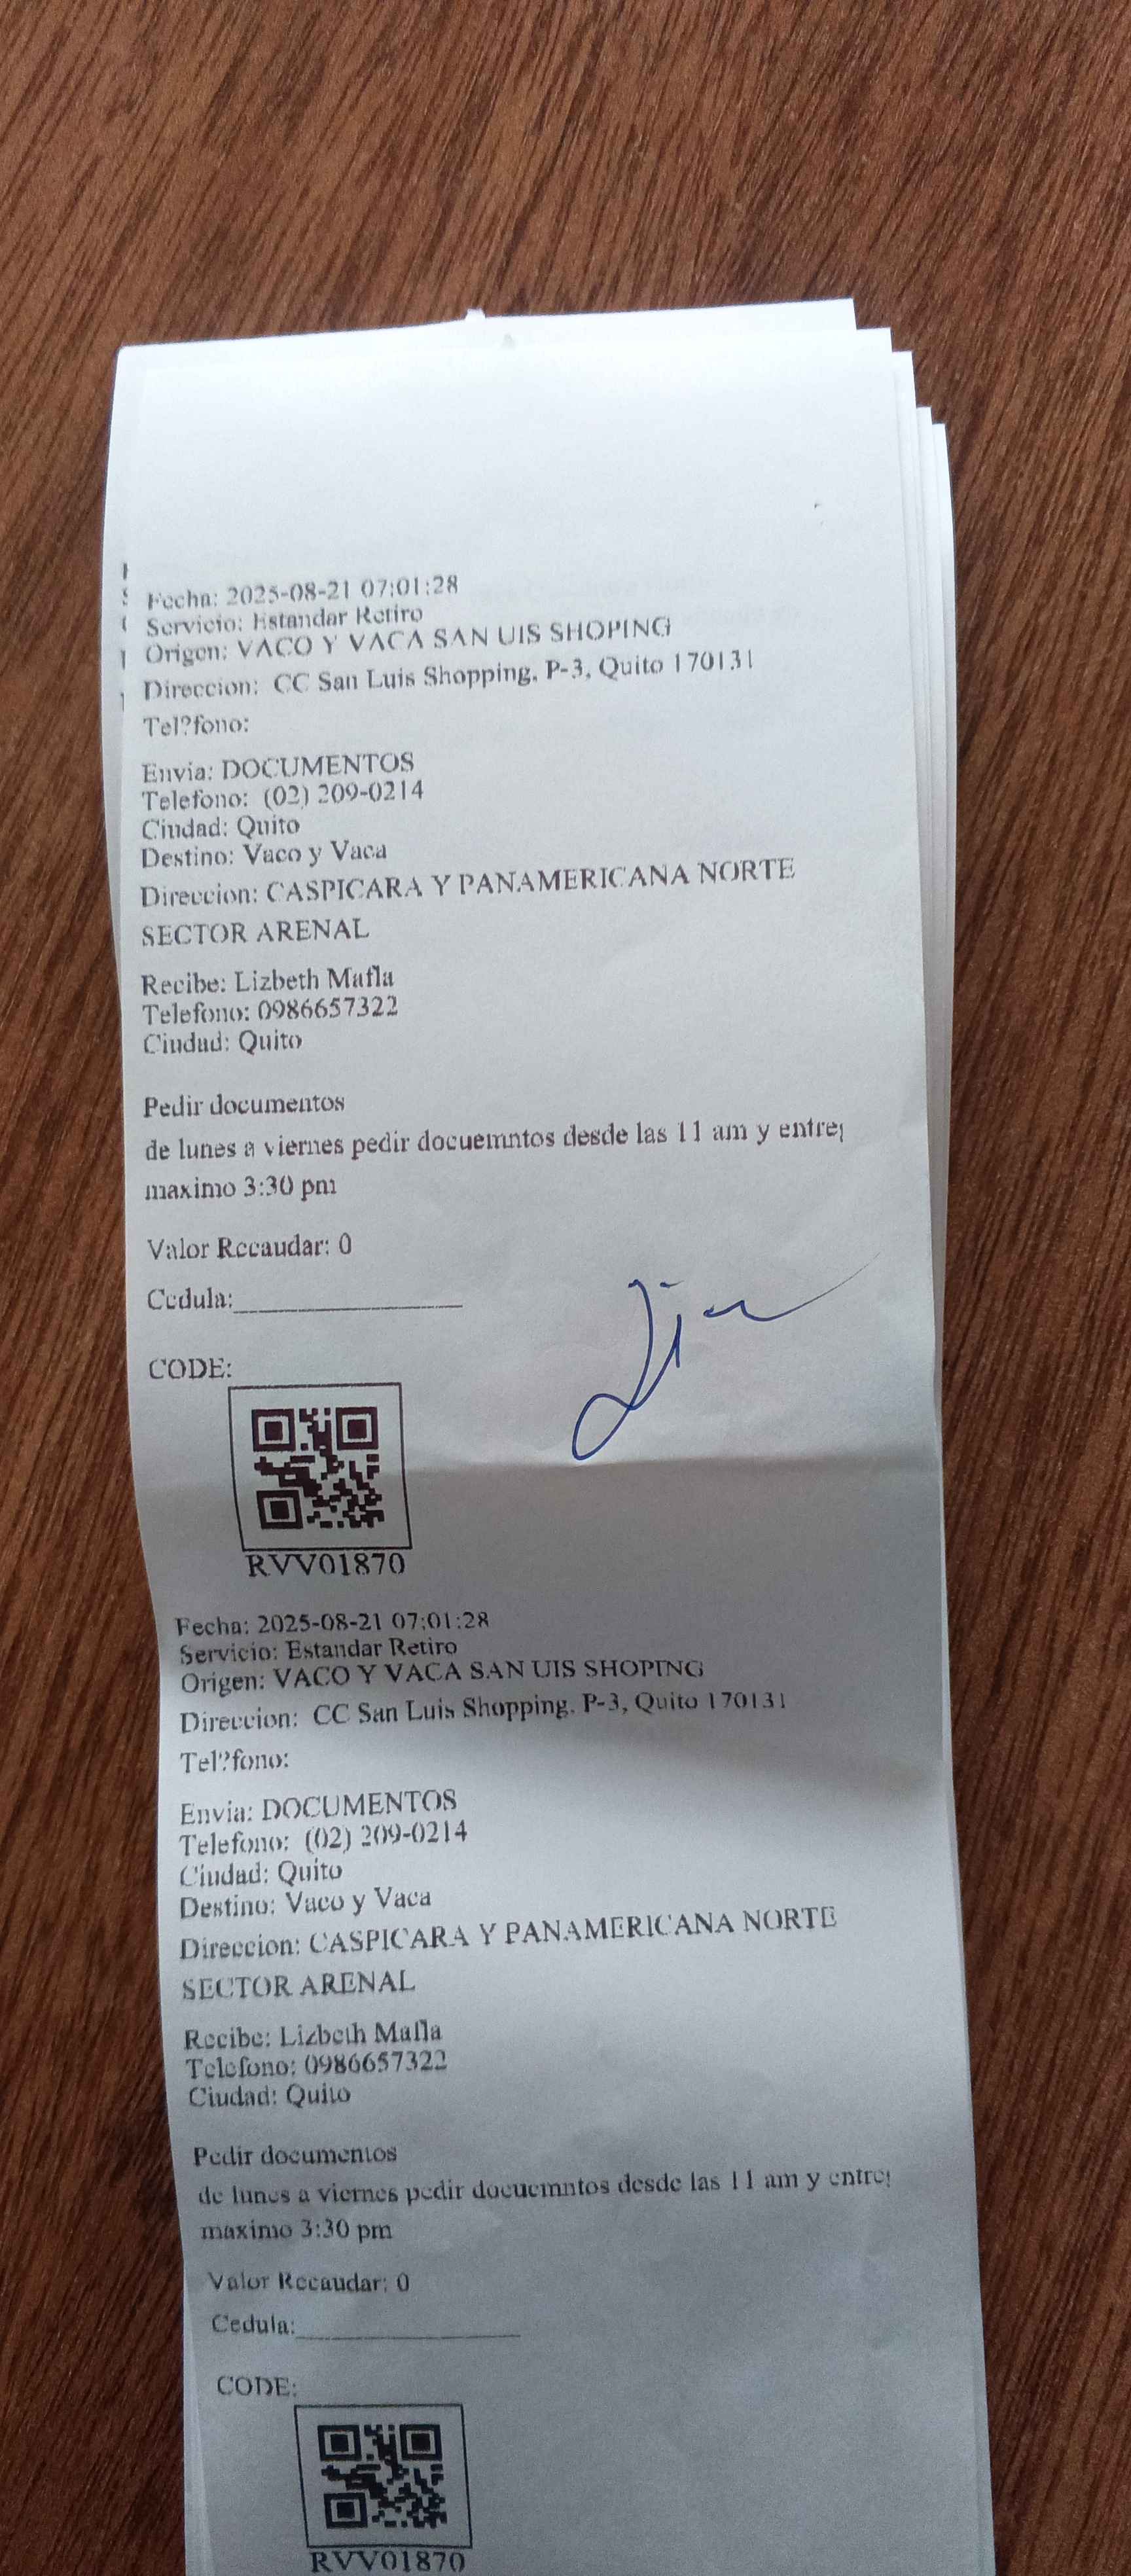 Fecha: 2025-08-21 07:01:28
Servicio: Estandar Retiro
Origen: VACO Y VACA SAN UIS SHOPING
Direccion: CC San Luis Shopping, P-3, Quito 170131
Tel?fono:
Envia: DOCUMENTOS
Telefono: (02) 209-0214
Ciudad: Quito
Destino: Vaco y Vaca
Direccion: CASPICARA Y PANAMERICANA NORTE
SECTOR ARENAL
Recibe: Lizbeth Mafla
Telefono: 0986657322
Ciudad: Quito
Pedir documentos
de lunes a viernes pedir docuemntos desde las 11 am y entre
maximo 3:30 pm
Valor Recaudar: 0
Cedula:
CODE:
RVV01870
Fecha: 2025-08-21 07:01:28
Servicio: Estandar Retiro
Origen: VACO Y VACA SAN UIS SHOPING
Direccion: CC San Luis Shopping, P-3, Quito 170131
Tel?fono:
Envia: DOCUMENTOS
Telefono: (02) 209-0214
Ciudad: Quito
Destino: Vaco y Vaca
Direccion: CASPICARA Y PANAMERICANA NORTE
SECTOR ARENAL
Recibe: Lizbeth Mafla
Telefono: 0986657322
Ciudad: Quito
Pedir documentos
de lunes a viernes pedir docuemntos desde las 11 am y entre
maximo 3:30 pm
Valor Recaudar: 0
Cedula:
CODE:
RVV01870